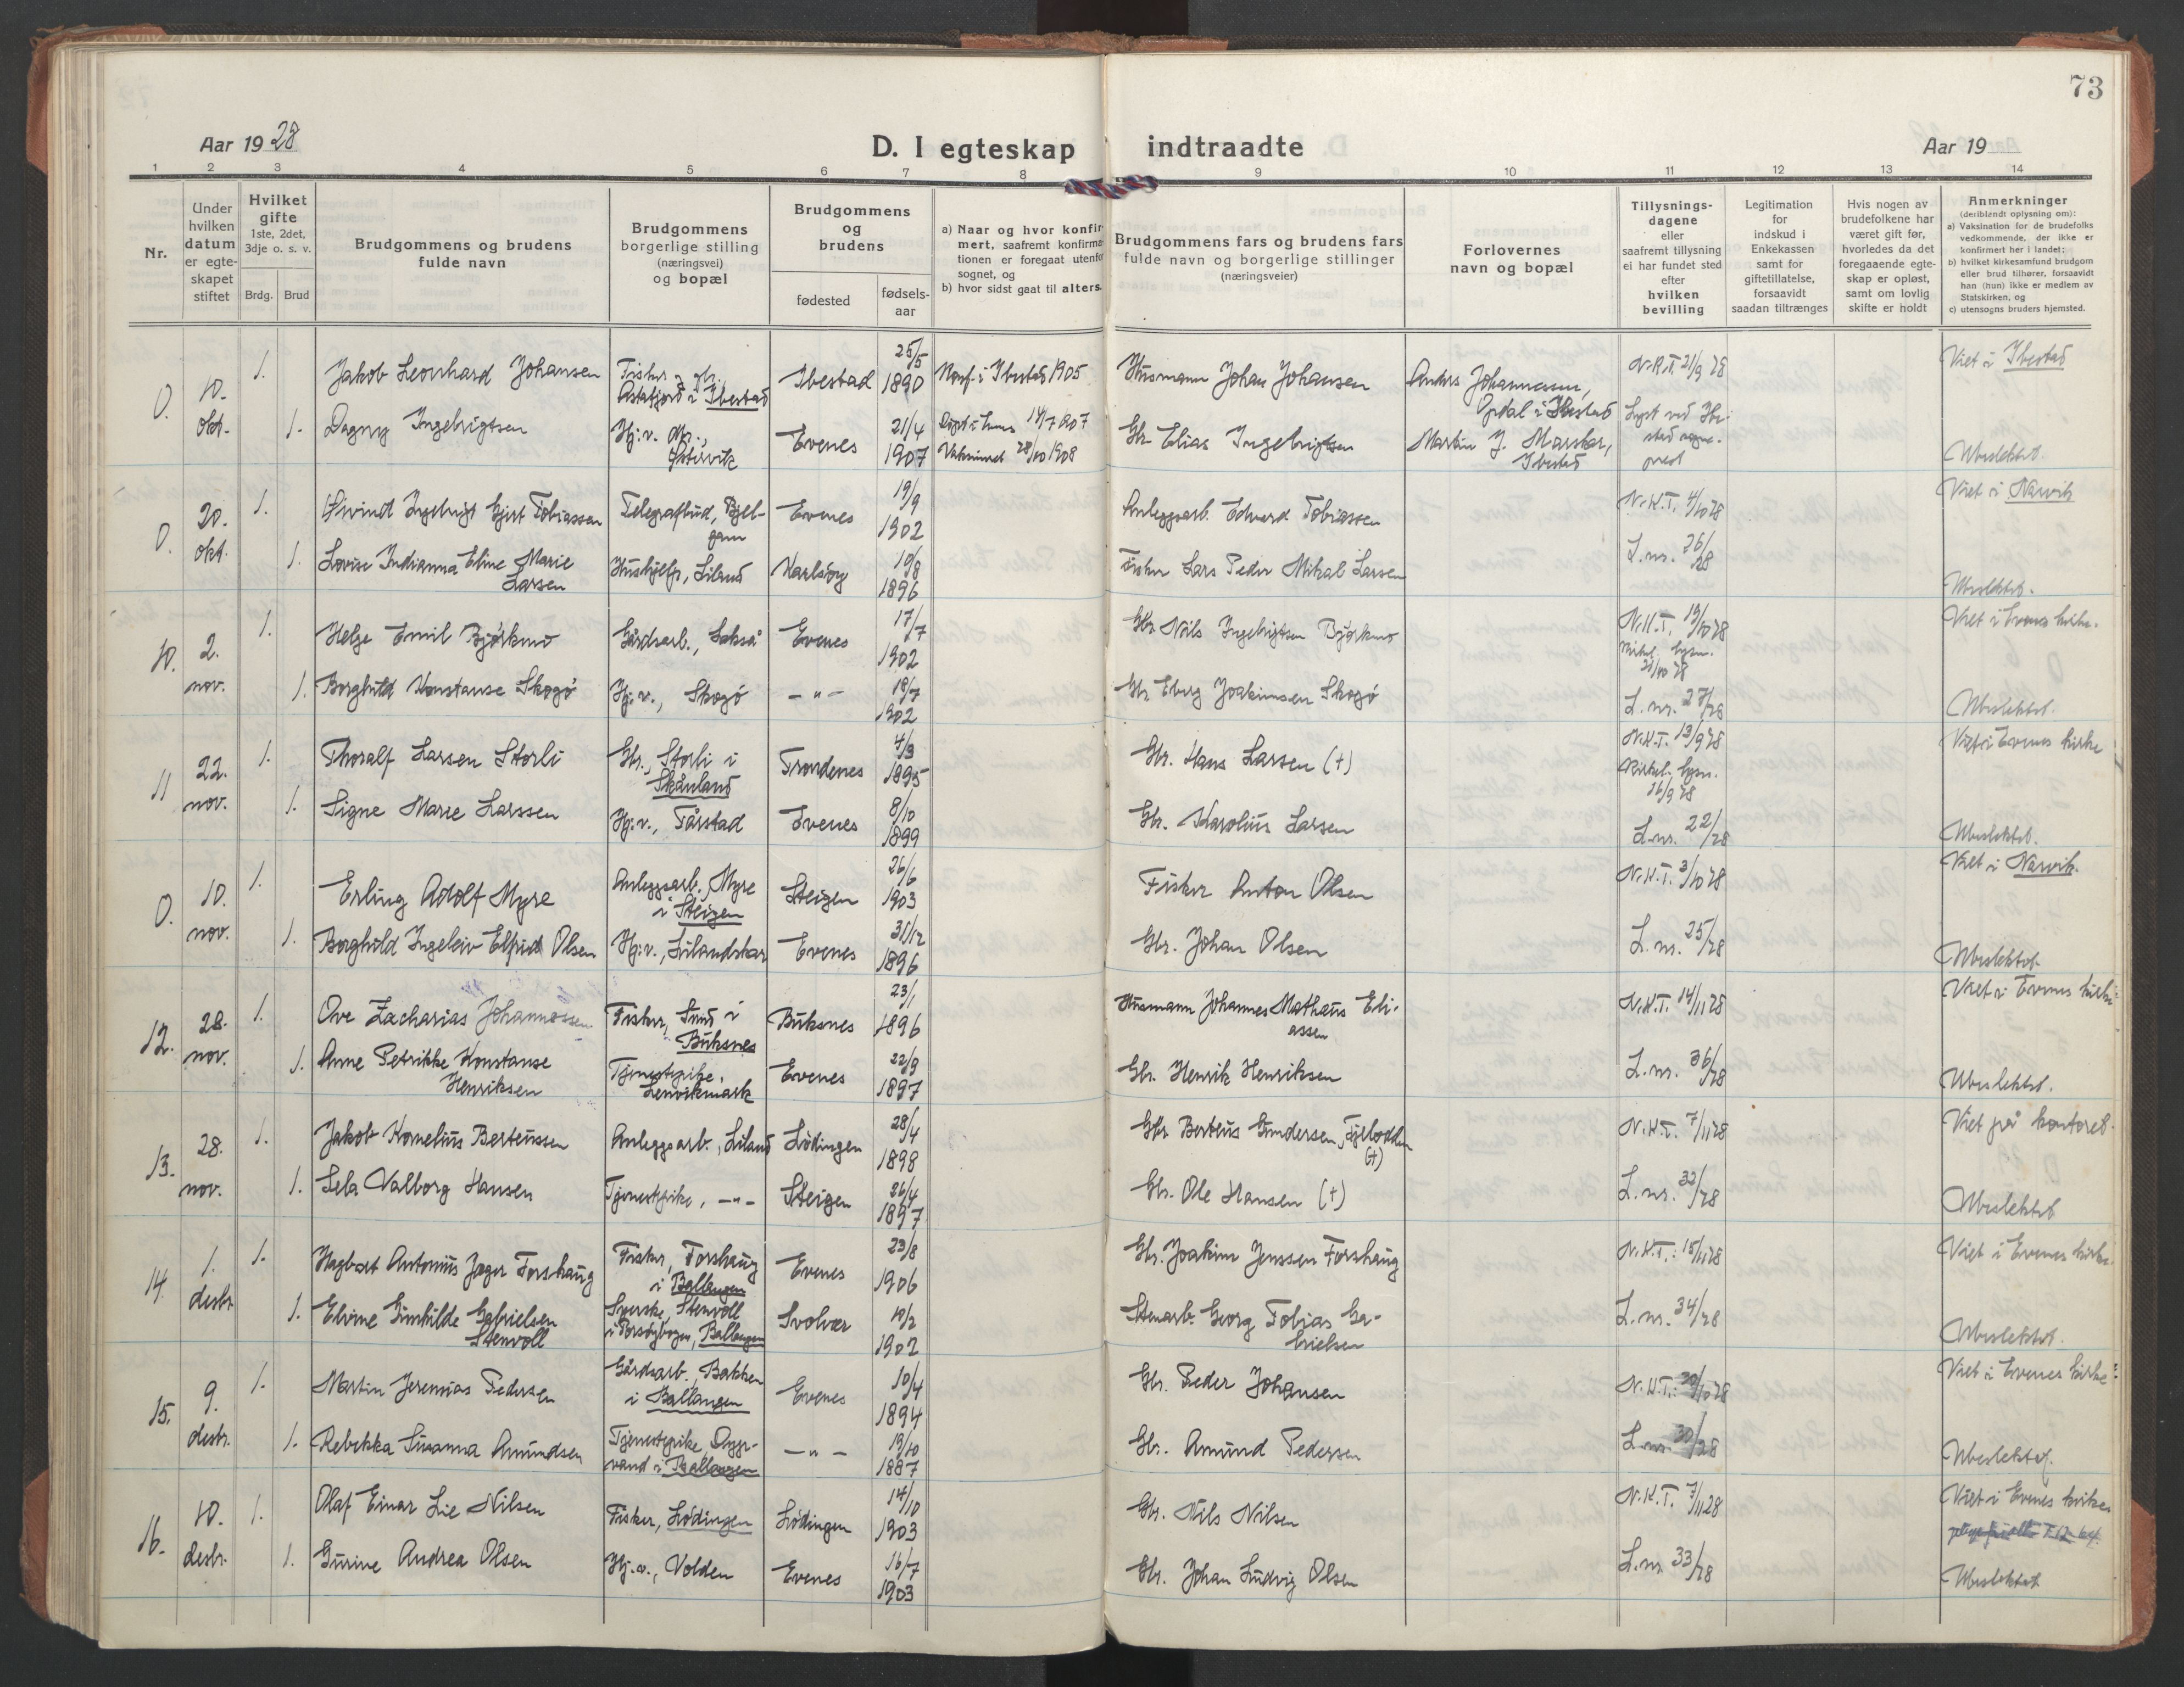 73
Aar 1928
D. I egteskap indtraadte
Aar 19
1 2 3 4 5 6 7 8 9 10 11 12 13 14
Nr.
Under
hvilken
datum
er egte-
skapet
stiftet
Hvilket
gifte
1ste, 2det,
3dje o. s. v.
Brdg. Brud
Brudgommens og brudens
fulde navn
Brudgommens
borgerlige stilling
(næringsvei)
og bopæl
Brudgommens
og
brudens
fødested
fødsels-
aar
a) Naar og hvor konfir-
mert, saafremt konfirma-
tionen er foregaat utenfor
sognet, og
b) hvor sidst gaat til alters.
Brudgommens fars og brudens fars
fulde navn og borgerlige stillinger
(næringsveier)
Forlovernes
navn og bopæl
Tillysnings-
dagene
eller
saafremt tillysning
ei har fundet sted
efter
hvilken
bevilling
Legitimation
for
indskud i
Enkekassen
samt for
giftetillatelse,
forsaavidt
saadan tiltrænges
Hvis nogen av
brudefolkene har
været gift før,
hvorledes da det
foregaaende egte-
skap er opløst,
samt om lovlig
skifte er holdt
Anmerkninger
(deriblandt oplysning om):
a) Vaksination for de brudefolks
vedkommende, der ikke er
konfirmert her i landet:
b) hvilket kirkesamfund brudgom
eller brud tilhører, forsaavidt
han (hun) ikke er medlem av
Statskirken, og
c) utensogns bruders hjemsted.
0. 10. okt.
1. Jakob Leonhard Johansen
Fisker og gbr.,
Astafjord i Ibestad
Ibestad 25/5 1890
Konf. i Ibestad 1905
Husmann Johan Johansen
Anders Johannessen,
Opdal i Ibestad
N.K.T. 21/9 28
Viet i Ibestad
1. Dagny Ingebrigtsen
Hj.v.
Østervik
Evenes 21/4 1907
Døpt i 14/7 1907
Vaksinert 28/10 1908
Gbr. Elias Ingebrigtsen
Martin J. Markar,
Ibestad
Lyst ved Ibe-
stad sogne-
prest
Ubeslektet.
0. 20. okt.
1. Øivind Ingebrigt Gjert Tobiassen
Telegrafbud, Bjel-
gam
Evenes 19/9 1902
Anleggsarb. Edvard Tobiassen
N.K.T. 4/10 28
Viet i Narvik
1. Lovise Indianna Eline Marie
Larsen
Hushjelp, Liland
Karlsøy 19/8 1896
Fisker Lars Peder Mikal Larsen
L.nr. 26/28
Ubeslektet.
10. 2. nov.
1. Helge Emil Bjørkmo
Gårdsarb., Lakså
Evenes 17/7 1902
Gbr. Nils Ingebrigtsen Bjørkmo
N.K.T. 19/10 28
Kirkel. lysn.
21/10 28
Viet i Evenes kirke.
1. Borghild Konstanse Skogø
Hj.v., Skogø
-"- 19/7 1902
Gbr. Eberg Joakimsen Skogø
L.nr. 27/28
Ubeslektet.
11 22. nov.
1. Thoralf Larsen Storli
Gbr., Storli i
Skånland
Trondenes 4/3 1895
Gbr. Hans Larsen (+)
N.K.T. 13/9 28
Kirkel. lysn.
16/9 28
Viet i Evenes kirke
1. Signe Marie Larssen
Hj.v., Tårstad
Evenes 8/10 1899
Gbr. Karolius Larsen
L.nr. 22/28
Ubeslektet.
0. 10. nov.
1. Erling Adolf Myre
Anleggsarb., Myre
i Steigen
Steigen 26/6 1903
Fisker Anton Olsen
N.K.T. 3/10 28
Viet i Narvik.
1. Borghild Ingeleiv Elfrid Olsen
Hj.v., Lilandskar
Evenes 31/12 1896
Gbr. Johan Olsen
L.nr. 25/28
Ubeslektet.
12. 28. nov.
1. Ove Zacharias Johannessen
Fisker, Sund i
Buksnes
Buksnes 23/1 1896
Husmann Johannes Mathæus Eli-
assen
N.K.T. 14/11 28
Viet i Evenes kirke.
1. Anne Petrikke Konstanse
Henriksen
Tjenestepike,
Lenvikmark
Evenes 22/9 1897
Gbr. Henrik Henriksen
L.nr. 36/28
Ubeslektet.
13. 28. nov.
1. Jakob Kornelius Berteussen
Anleggsarb., Liland
Lødingen 28/4 1898
Gbr. Berteus Gundersen,
(+)
N.K.T. 7/11 28
Viet på kontoret.
1. Lela Valborg Hansen
Tjenestepike, -"-
Steigen 26/4 1897
Gbr. Ole Hansen (+)
L.nr. 32/28
Ubeslektet
14. 1. desbr.
1. Hagbart Antonius Jager Forshaug
Fisker, Forshaug
i Ballangen
Evenes 23/8 1906
Gbr. Joakim Jenssen Forshaug
N.K.T.: 15/11 28
Viet i Evenes kirke.
1. Elvine Gunhilde Gabrielsen
Stenvoll
Syerske, Stenvoll
i Forsøybogen, Ballangen
Svolvær 10/2 1902
Stenarb. Georg Tobias Ga-
brielsen
L.nr. 34/28
Ubeslektet.
15. 9. desbr.
1. Martin Jeremias Pedersen
Gårdsarb., Bakken
i Ballangen
Evenes 10/4 1894
Gbr. Peder Johansen
N.K.T.: 30/10 28
Viet i Evenes kirke.
1. Rebekka Susanna Amundsen
Tjenestepike, Dypr-
vand i Ballangen
-"- 19/10 1887
Gbr. Amund Pedersen
L.nr. 30/28
Ubeslektet.
16. 10. desbr.
1. Olaf Einar Lie Nilsen
Fisker, Lødingen
Lødingen 14/10 1903
Gbr. Nils Nilsen
N.K.T. 7/11 28
Viet i Evenes kirke
1. Gurine Andrea Olsen
Hj.v., Volden
Evenes 16/7 1903
Gbr. Johan Ludvig Olsen
L.nr. 33/28
Ubeslektet